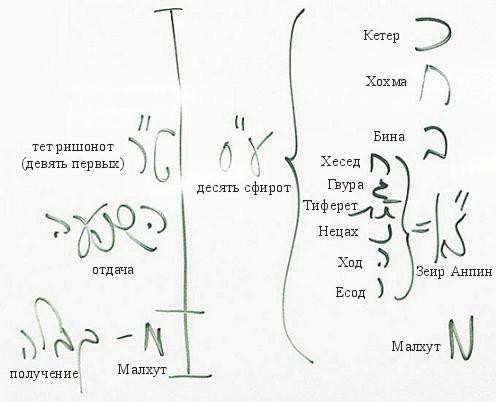 Кетер כ
Хохма ח
Бина ב
Хесед ח
Гвура ג
Тиферет ת
Нецах נ
Ход ה
Есод י
= ז"א
Зеир Анпин
Малхут מ
ע"ס
десять сфирот
тет ришонот
(девять первых)
ט"ר
השפעה
отдача
מ - קבלה
получение
Малхут